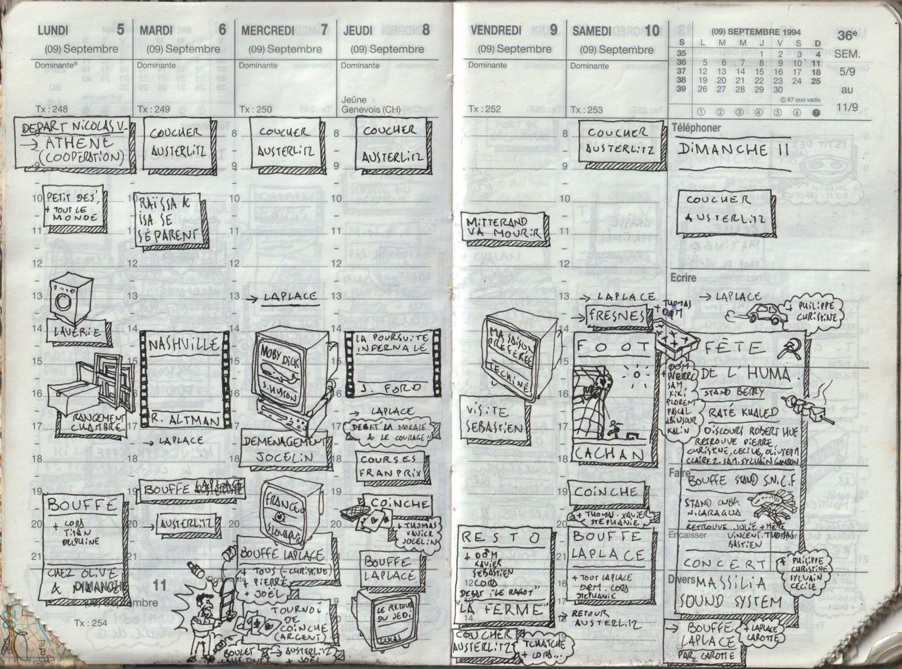 LUNDI 5
(09) Septembre
Dominante®
Tx : 248
DEPART NICOLAS V.
→ ATHENE
(COOPERATION)
8
9
10
PETIT DES'
+ TOUT LE
MONDE
11
12
13
LAVERIE
14
15
16
RANGEMENT
CHAMBRE
17
18
19
BOUFFE
+ LORS
TITAN
DELFINE
20
21
CHEZ OLIVE
& DIMANCHE
11
Tx : 254
MARDI 6
(09) Septembre
Dominante
Tx : 249
COUCHER
AUSTERLITZ
RAÏSSA &
ISSA SE
SÉPARENT
NASHVILLE
R. ALTMAN
→ LAPLACE
BOUFFE LAPLACE
→ AUSTERLITZ
MERCREDI 7
(09) Septembre
Dominante
Tx : 250
COUCHER
AUSTERLITZ
→ LAPLACE
MOBY DICK
J. HUSTON
DEMENAGEMENT
JOCELIN
BOUFFE LAPLACE
+ TOUS (- CHRISTINE)
+ PIERRE
+ JOËL
TOURNOI
DE
COINCHE
(ARGENT)
→ AUSTERLITZ
+ JOËL
JEUDI 8
(09) Septembre
Dominante
Jeûne
Genevois (CH)
COUCHER
AUSTERLITZ
LA POURSUITE
INFERNALE
J. FORD
→ LAPLACE
DEBAT LA MORALE
& LE COURAGE
COURSES
FRANPRIX
COINCHE
+ THOMAS
XAVIER
JOCELIN
BOUFFE
LAPLACE
LE RETOUR
DU JEDI
LUCAS
VENDREDI 9
(09) Septembre
Dominante
Tx : 252
8
9
10
MITTERAND
VA MOURIR
11
12
13
MA SAISON
PRÉFÉRÉE
TECHINÉ
VISITE
SEBASTIEN
RESTO
+ DOM
XAVIER
SEBASTIEN
LORS
DEBAT "LE RAGOT"
"LA FERME"
COUCHER
AUSTERLITZ
TCHATCHE
+ LORS...
SAMEDI 10
(09) Septembre
Dominante
Tx : 253
COUCHER
AUSTERLITZ
→ LAPLACE
→ FRESNES
+ THOMAS
DOM
FOOT
CACHAN
+ DOM
PIERRE
SAM,
KIKI
FLORENT
PASCAL
COINCHE
+ THOMAS - XAVIER
STEPHANIE
BOUFFE
LAPLACE
+ TOUT LAPLACE
DOM. LORS
STEPHANIE
→ RETOUR
AUSTERLITZ
(09) SEPTEMBRE 1994
S L M M J V S D
35 1 2 3 4
36 5 6 7 8 9 10 11
37 12 13 14 15 16 17 18
38 19 20 21 22 23 24 25
39 26 27 28 29 30
© 87 quo vadis
① ② ③ ④ ⑤ ⑥ ⑦
36e
SEM.
5/9
au
11/9
Téléphoner
DIMANCHE 11
COUCHER
AUSTERLITZ
Ecrire
→ LAPLACE
+ PHILIPPE
CHRISTINE
FÊTE
DE L'HUMA
STAND BERRY
RATÉ KHALED
DISCOURS ROBERT HUE
RETROUVE PIERRE
CHRISTINE, CECILE, OLIVIER M
CLAIRE Z. SAM. SYLVAIN
Faire
BOUFFE STAND S.N.C.F
STAND CUBA
NICARAGUA
RETROUVE JOLIE + MEHDI
VINCENT, THOMAS
BASTIEN
Encaisser
CONCERT
+ PHILIPPE
CHRISTINE
SYLVAIN
CECILE
Divers
MASSILIA
SOUND SYSTEM
→ BOUFFE
LAPLACE
PAR CAROTTE
+ LAPLACE
CAROTTE